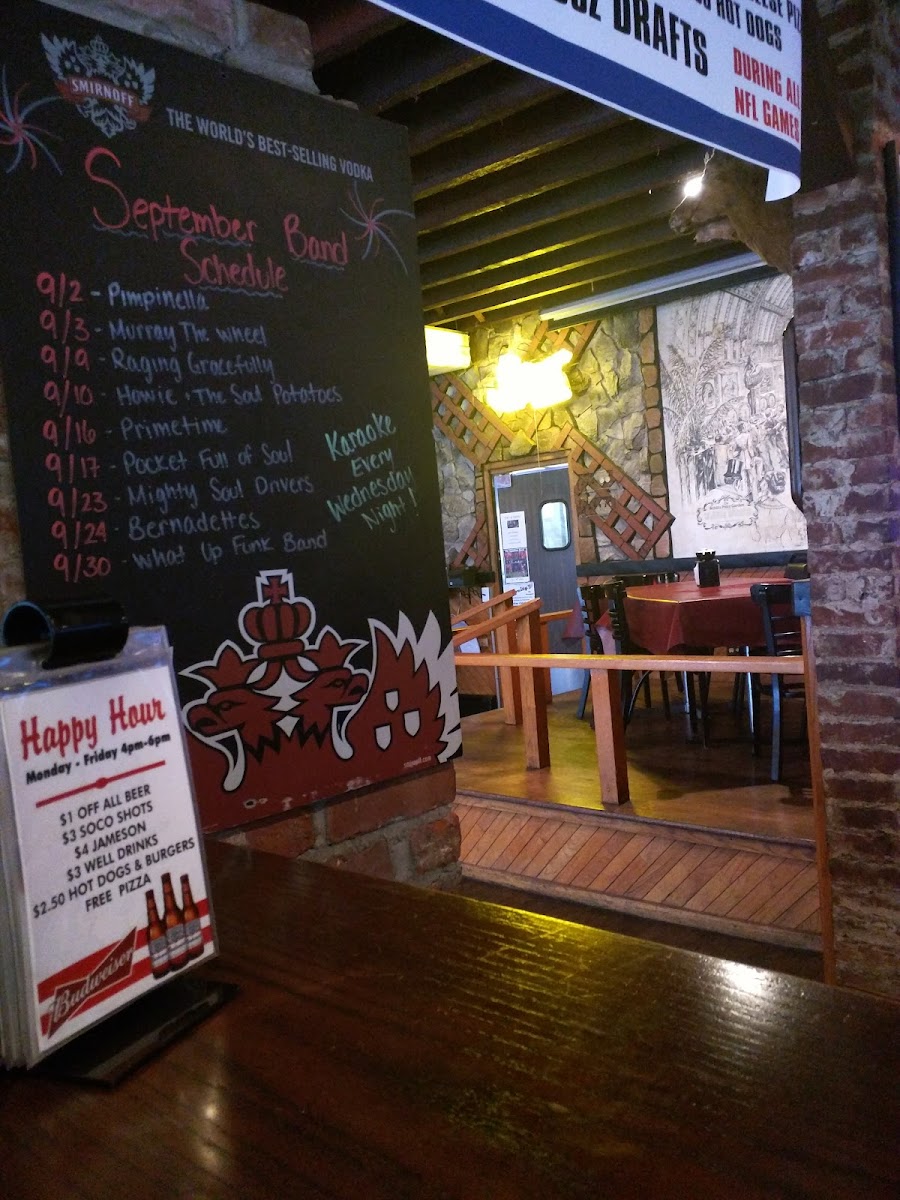 SMIRNOFF
THE WORLD'S BEST-SELLING VODKA
September Band
Schedule
9/2 - Pimpinella
9/3 - Murray The wheel
9/9 - Raging Gracefully
9/10 - Howie + The Soul Potatoes
9/16 - Primetime
9/17 - Pocket Full of Soul
9/23 - Mighty Soul Drivers
9/24 - Bernadettes
9/30 - What Up Funk Band
Karaoke
Every
Wednesday
Night!
HOT DOGS
DRAFTS
DURING ALL
NFL GAMES
Happy Hour
Monday - Friday 4pm-6pm
$1 OFF ALL BEER
$3 SOCO SHOTS
$4 JAMESON
$3 WELL DRINKS
$2.50 HOT DOGS & BURGERS
FREE PIZZA
Budweiser